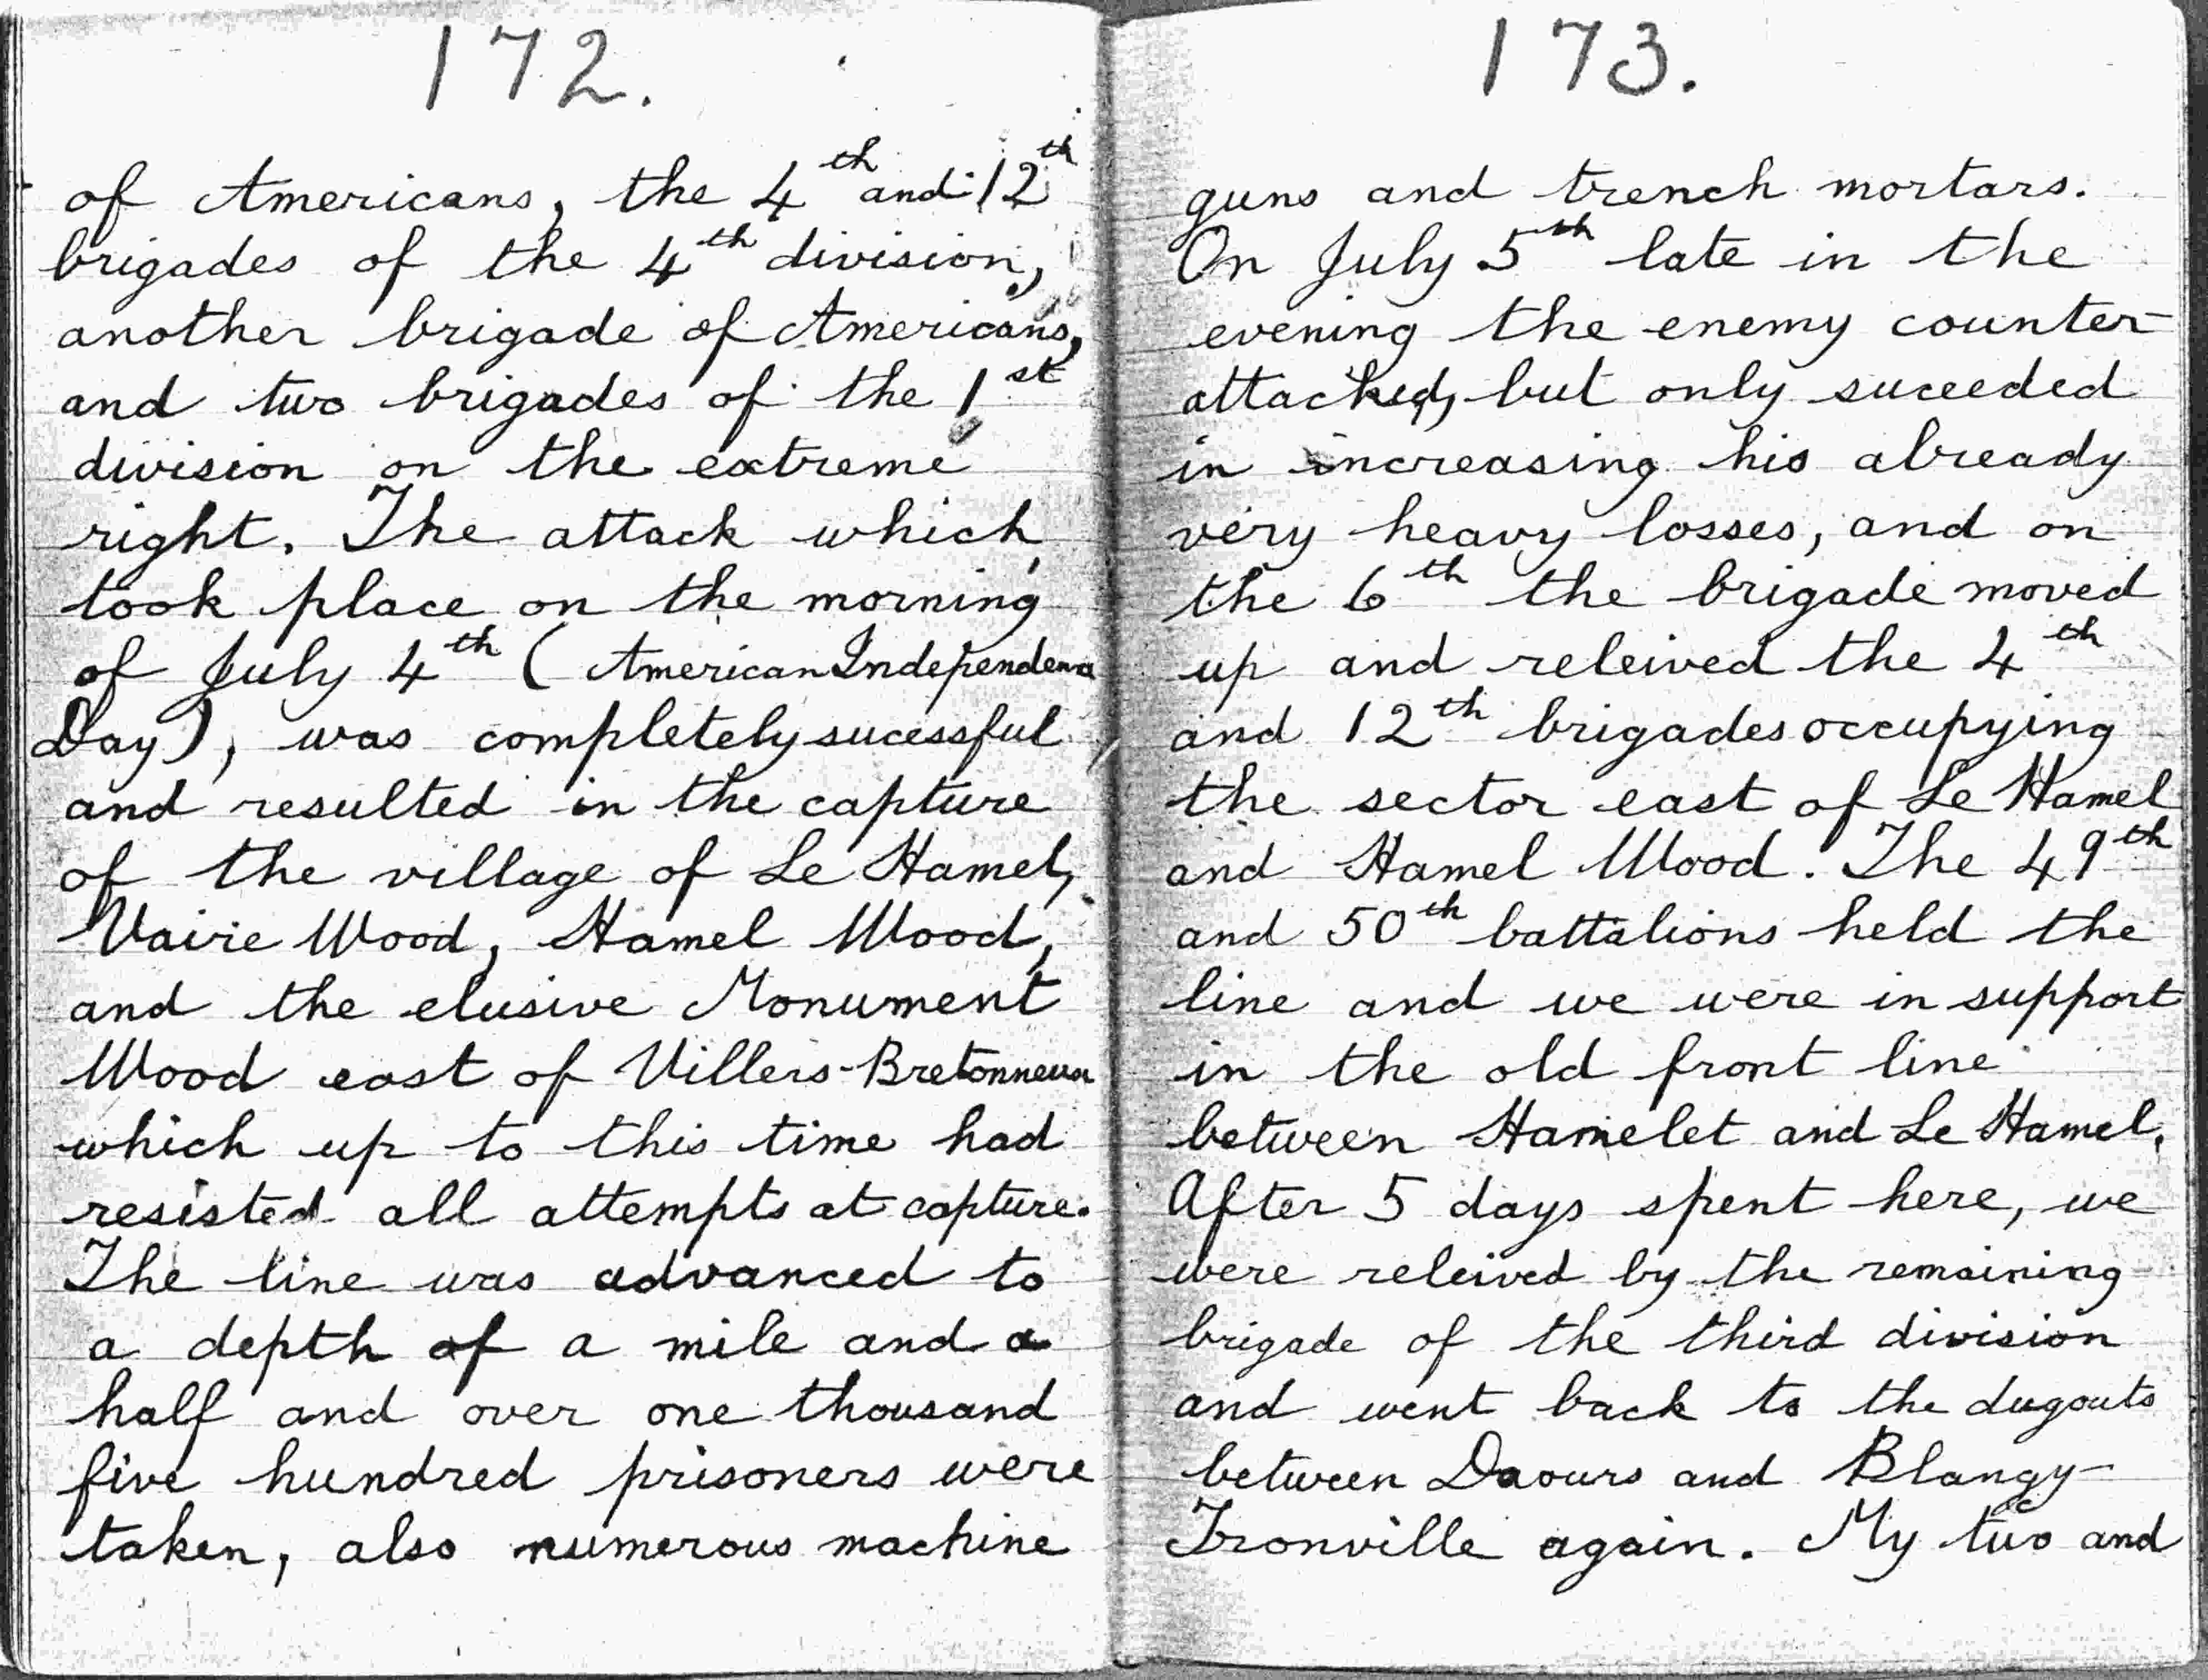 172.
of Americans, the 4th and 12th
brigades of the 4th division,
another brigade of Americans,
and two brigades of the 1st
division on the extreme
right. The attack which
took place on the morning
of July 4th (American Independence
Day), was completely sucessful
and resulted in the capture
of the village of Le Hamel,
Vaire Wood, Hamel Wood,
and the elusive Monument
Wood east of Villers-Bretonneux
which up to this time had
resisted all attempts at capture.
The line was advanced to
a depth of a mile and a
half and over one thousand
five hundred prisoners were
taken, also numerous machine
173.
guns and trench mortars.
On July 5th late in the
evening the enemy counter
attacked, but only suceeded
in increasing his already
very heavy losses, and on
the 6th the brigade moved
up and releived the 4th
and 12th brigades occupying
the sector east of Le Hamel
and Hamel Wood. The 49th
and 50th battalions held the
line and we were in support
in the old front line
between Hamelet and Le Hamel.
After 5 days spent here, we
were releived by the remaining
brigade of the third division
and went back to the dugouts
between Daours and Blangy-
Tronville again. My two and